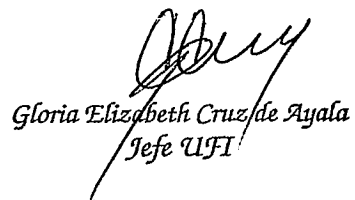 Gloria Elizabeth Cruz de Ayala
Jefe UFI